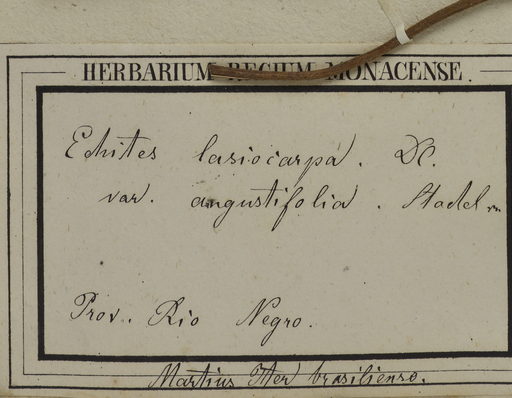 HERBARIUM REGIUM MONACENSE.
Echites lasiocarpa. DC.
var. angustifolia. Stadelm.
Prov. Rio Negro.
Martius Iter brasiliense.